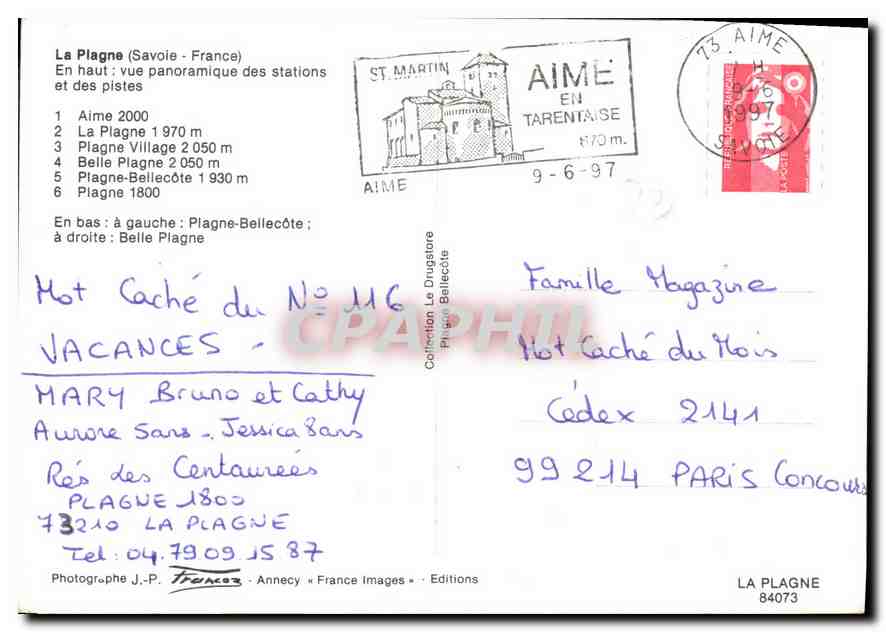 La Plagne (Savoie - France)
En haut : vue panoramique des stations
et des pistes
1 Aime 2000
2 La Plagne 1 970 m
3 Plagne Village 2 050 m
4 Belle Plagne 2 050 m
5 Plagne-Bellecôte 1 930 m
6 Plagne 1800
En bas : à gauche : Plagne-Bellecôte ;
à droite : Belle Plagne
ST. MARTIN
AIME
EN
TARENTAISE
670 m.
AIME
9-6-97
73 AIME
H
9-6
1997
SAVOIE
REPUBLIQUE FRANÇAISE
LA POSTE
Collection Le Drugstore
Plagne Bellecôte
CPAPHIL
Mot Caché du No 116
VACANCES -
MARY Bruno et Cathy
Aurore 5ans - Jessica 8ans
Rés des Centaurées
PLAGNE 1800
73210 LA PLAGNE
Tel : 04.79.09.15.87
Famille Magazine
Mot Caché du Mois
Cédex 2141
99214 PARIS Concours
Photographe J.-P. - Annecy « France Images » - Editions
LA PLAGNE
84073